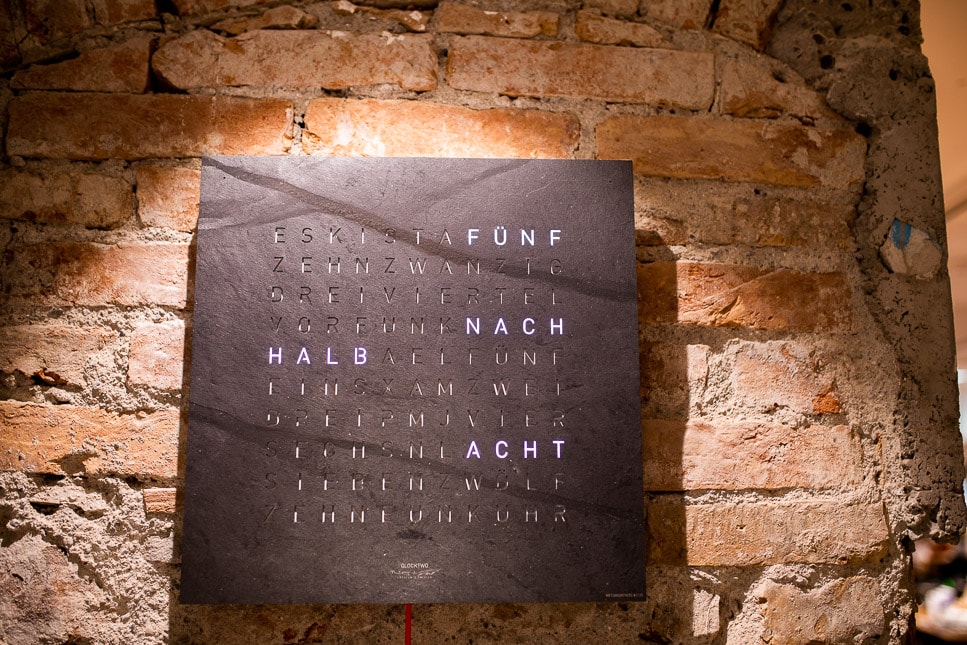 ESKISTAFÜNF
ZEHNZWANZIG
DREIVIERTEL
VORFUNKNACH
HALBAELFÜNF
EINSXAMZWEI
DREIPMJVIER
SECHSNLACHT
SIEBENZWÖLF
ZEHNEUNKUHR
QLOCKTWO